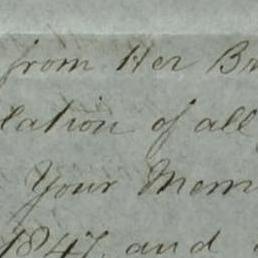 from Her Br
lation of all
Your Mem
1847, and